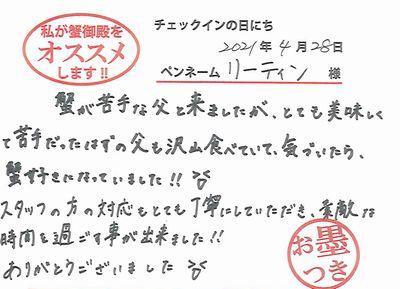 私が蟹御殿を
オススメ
します!!
チェックインの日にち
2021年4月28日
ペンネーム リーティン 様
蟹が苦手な父と来ましたが、とても美味しく
て苦手だったはずの父も沢山食べていて、気づいたら、
蟹好きになっていました!!
スタッフの方の対応もとても丁寧にしていただき、素敵な
時間を過ごす事が出来ました!!
ありがとうございました
お墨
つき